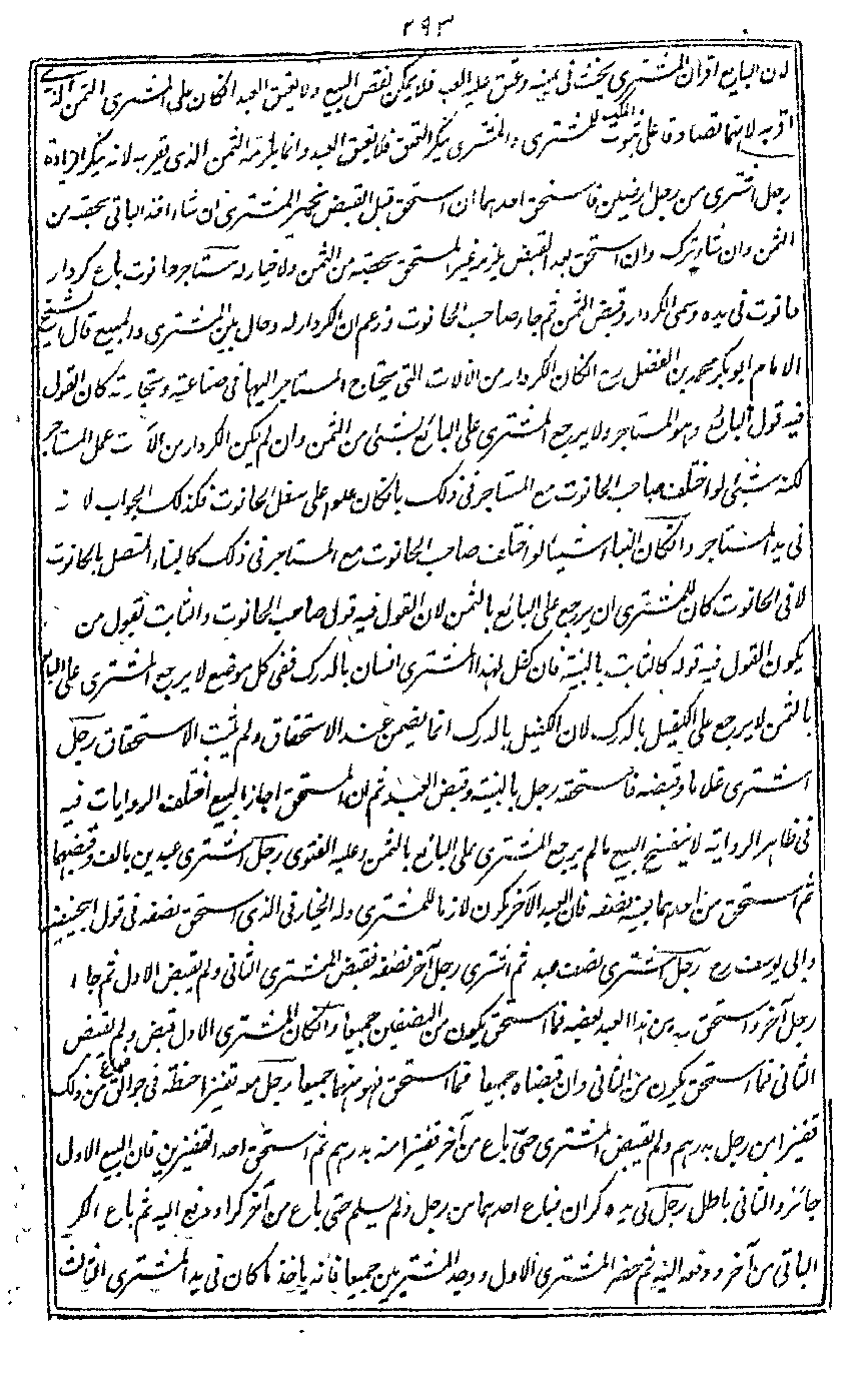 ٢٩٣
لان البايع اقر ان المشترى يحنث فى يمينه وعتق عليه العبد فلا يمكن نقض البيع ولا يعتق العبد ان كان على المشترى الثمن الذى
اقر به لانهما تصادقا على ثبوت الملك للمشترى والمشترى ينكر العتق فلا يعتق العبد وانما يلزمه الثمن الذى يقر به لانه ينكر الزيادة
رجل اشترى من رجل ارضين فاستحق احدهما ان استحق قبل القبض يخير المشترى ان شاء اخذ الباقى بحصته من
الثمن وان شاء ترك وان استحق بعد القبض يلزمه غير المستحق بحصته من الثمن ولا خيار له مستاجر حانوت باع كردار
حانوت فى يده وسمى الكردار وقبض الثمن ثم جاء صاحب الحانوت وزعم ان الكردار له وحال بين المشترى والمبيع قال الشيخ
الامام ابو بكر محمد بن الفضل رح ان كان الكردار من الآلات التى يحتاج المستاجر اليها فى صناعته وتجارته كان القول
فيه قول البائع وهو المستاجر ولا يرجع المشترى على البائع بشئ من الثمن وان لم يكن الكردار من الآت عمل المستاجر
لكنه شئ لو اختلف صاحب الحانوت مع المستاجر فى ذلك بان كان علوا على سفل الحانوت فكذلك الجواب لانه
فى يد المستاجر وان كان البناء شيئا لو اختلف صاحب الحانوت مع المستاجر فى ذلك كالبناء المتصل بالحانوت
لا فى الحانوت كان للمشترى ان يرجع على البائع بالثمن لان القول فيه قول صاحب الحانوت والثابت بقول من
يكون القول فيه قوله كالثابت بالبينة فان كفل لهذا المشترى انسان بالدرك ففى كل موضع لا يرجع المشترى على البائع
بالثمن لا يرجع على الكفيل بالدرك لان الكفيل بالدرك انما يضمن عند الاستحقاق ولم يثبت الاستحقاق رجل
اشترى غلاما وقبضه فاستحقه رجل بالبينة وقبض العبد ثم ان المستحق اجاز البيع اختلف الروايات فيه
فى ظاهر الرواية لا ينفسخ البيع ما لم يرجع المشترى على البائع بالثمن وعليه الفتوى رجل اشترى عبدين بالف وقبضهما
ثم استحق من احدهما بعينه نصفه فان العبد الآخر يكون لازما للمشترى وله الخيار فى الذى استحق نصفه فى قول ابيحنيفة
وابى يوسف رح رجل اشترى نصف عبد ثم اشترى رجل آخر نصفه فقبض المشترى الثانى ولم يقبض الاول ثم جاء
رجل آخر واستحق من هذا العبد نصفه فما استحق يكون من النصفين جميعا وان كان المشترى الاول قبض ولم يقبض
الثانى فما استحق يكون من الثانى وان قبضاه جميعا فما استحق فهو منهما جميعا رجل معه قفيزا حنطة فى جوالق فباع من ذلك
قفيزا من رجل بدرهم ولم يقبض المشترى حتى باع من آخر قفيزا منه بدرهم ثم استحق احد القفيزين فان البيع الاول
جائز والثانى باطل رجل فى يده كران فباع احدهما من رجل ولم يسلم حتى باع من آخر كرا ودفع اليه ثم باع الكر
الباقى من آخر ودفعه اليه ثم حضر المشترى الاول ووجد المشتريين جميعا فانه ياخذ ما كان فى يد المشترى الثالث